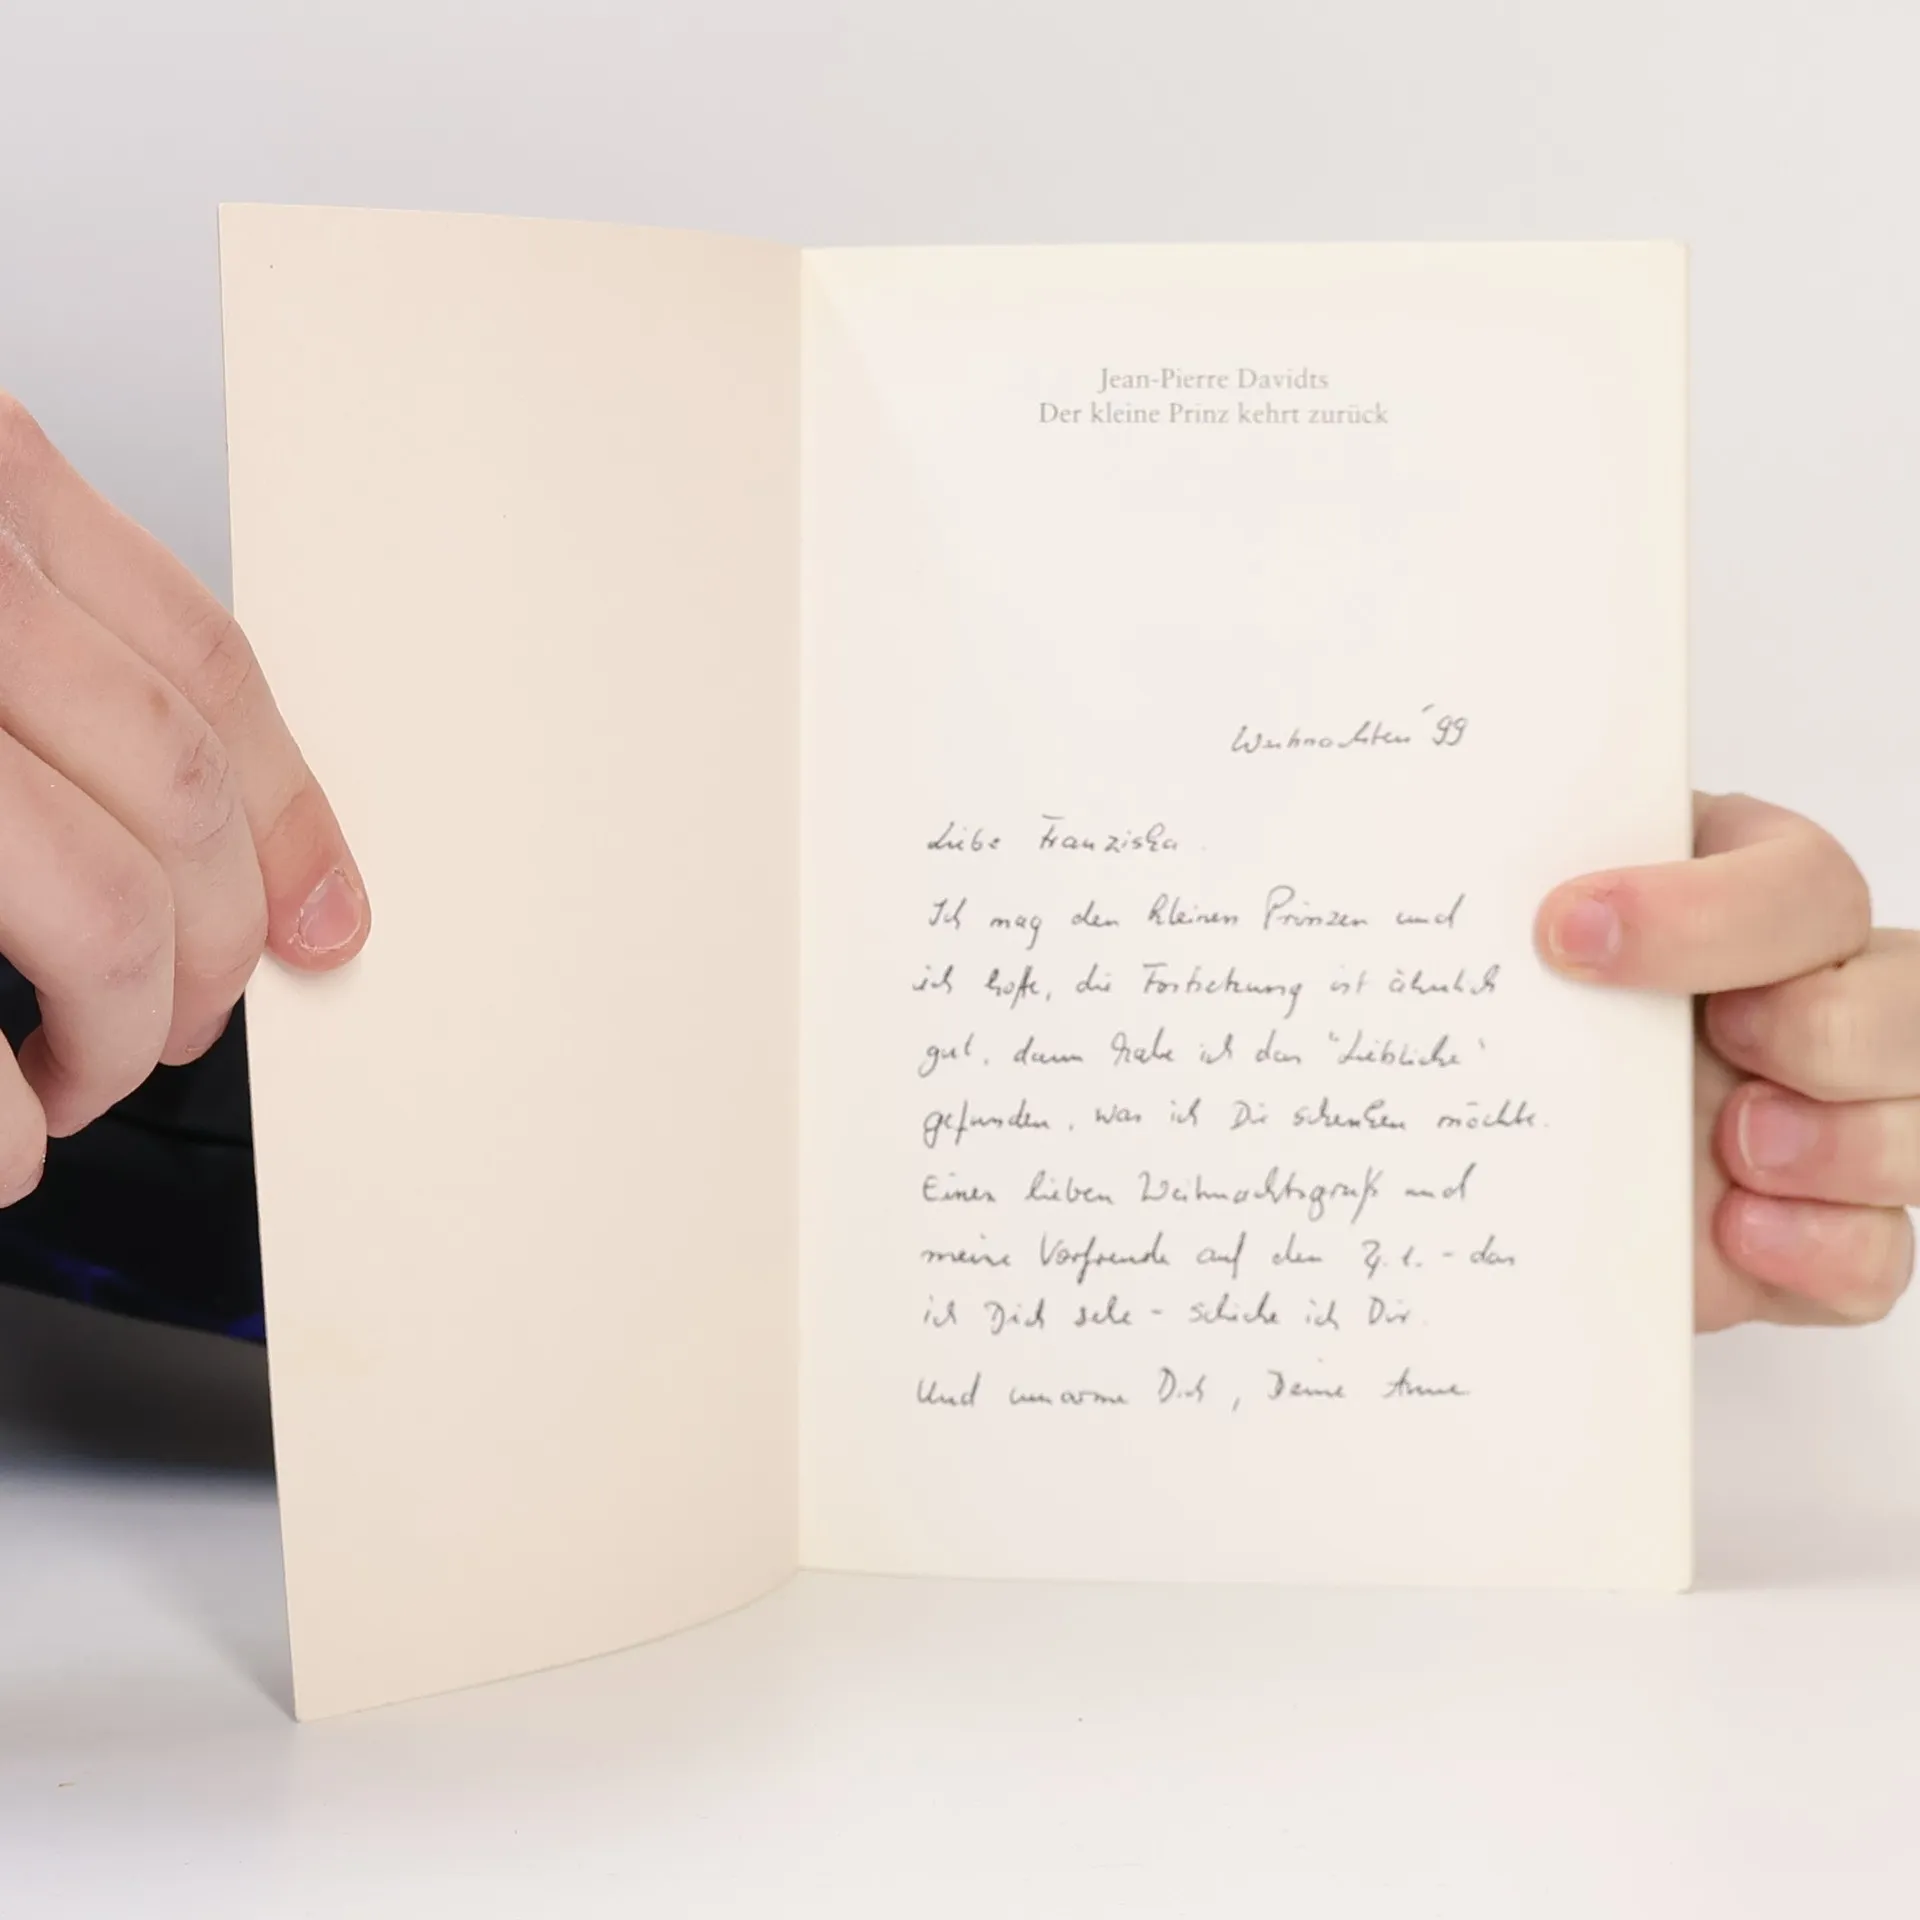 Jean-Pierre Davidts
Der kleine Prinz kehrt zurück
Weihnachten '99
Liebe Franziska
Ich mag den kleinen Prinzen und
ich hoffe, die Fortsetzung ist ähnlich
gut, dann habe ich das "Liebliche"
gefunden, was ich Dir schenken möchte.
Einen lieben Weihnachtsgruß und
meine Vorfreude auf den 1. - das
ich Dich sehe - schicke ich Dir.
Und umarme Dich, Deine Anne